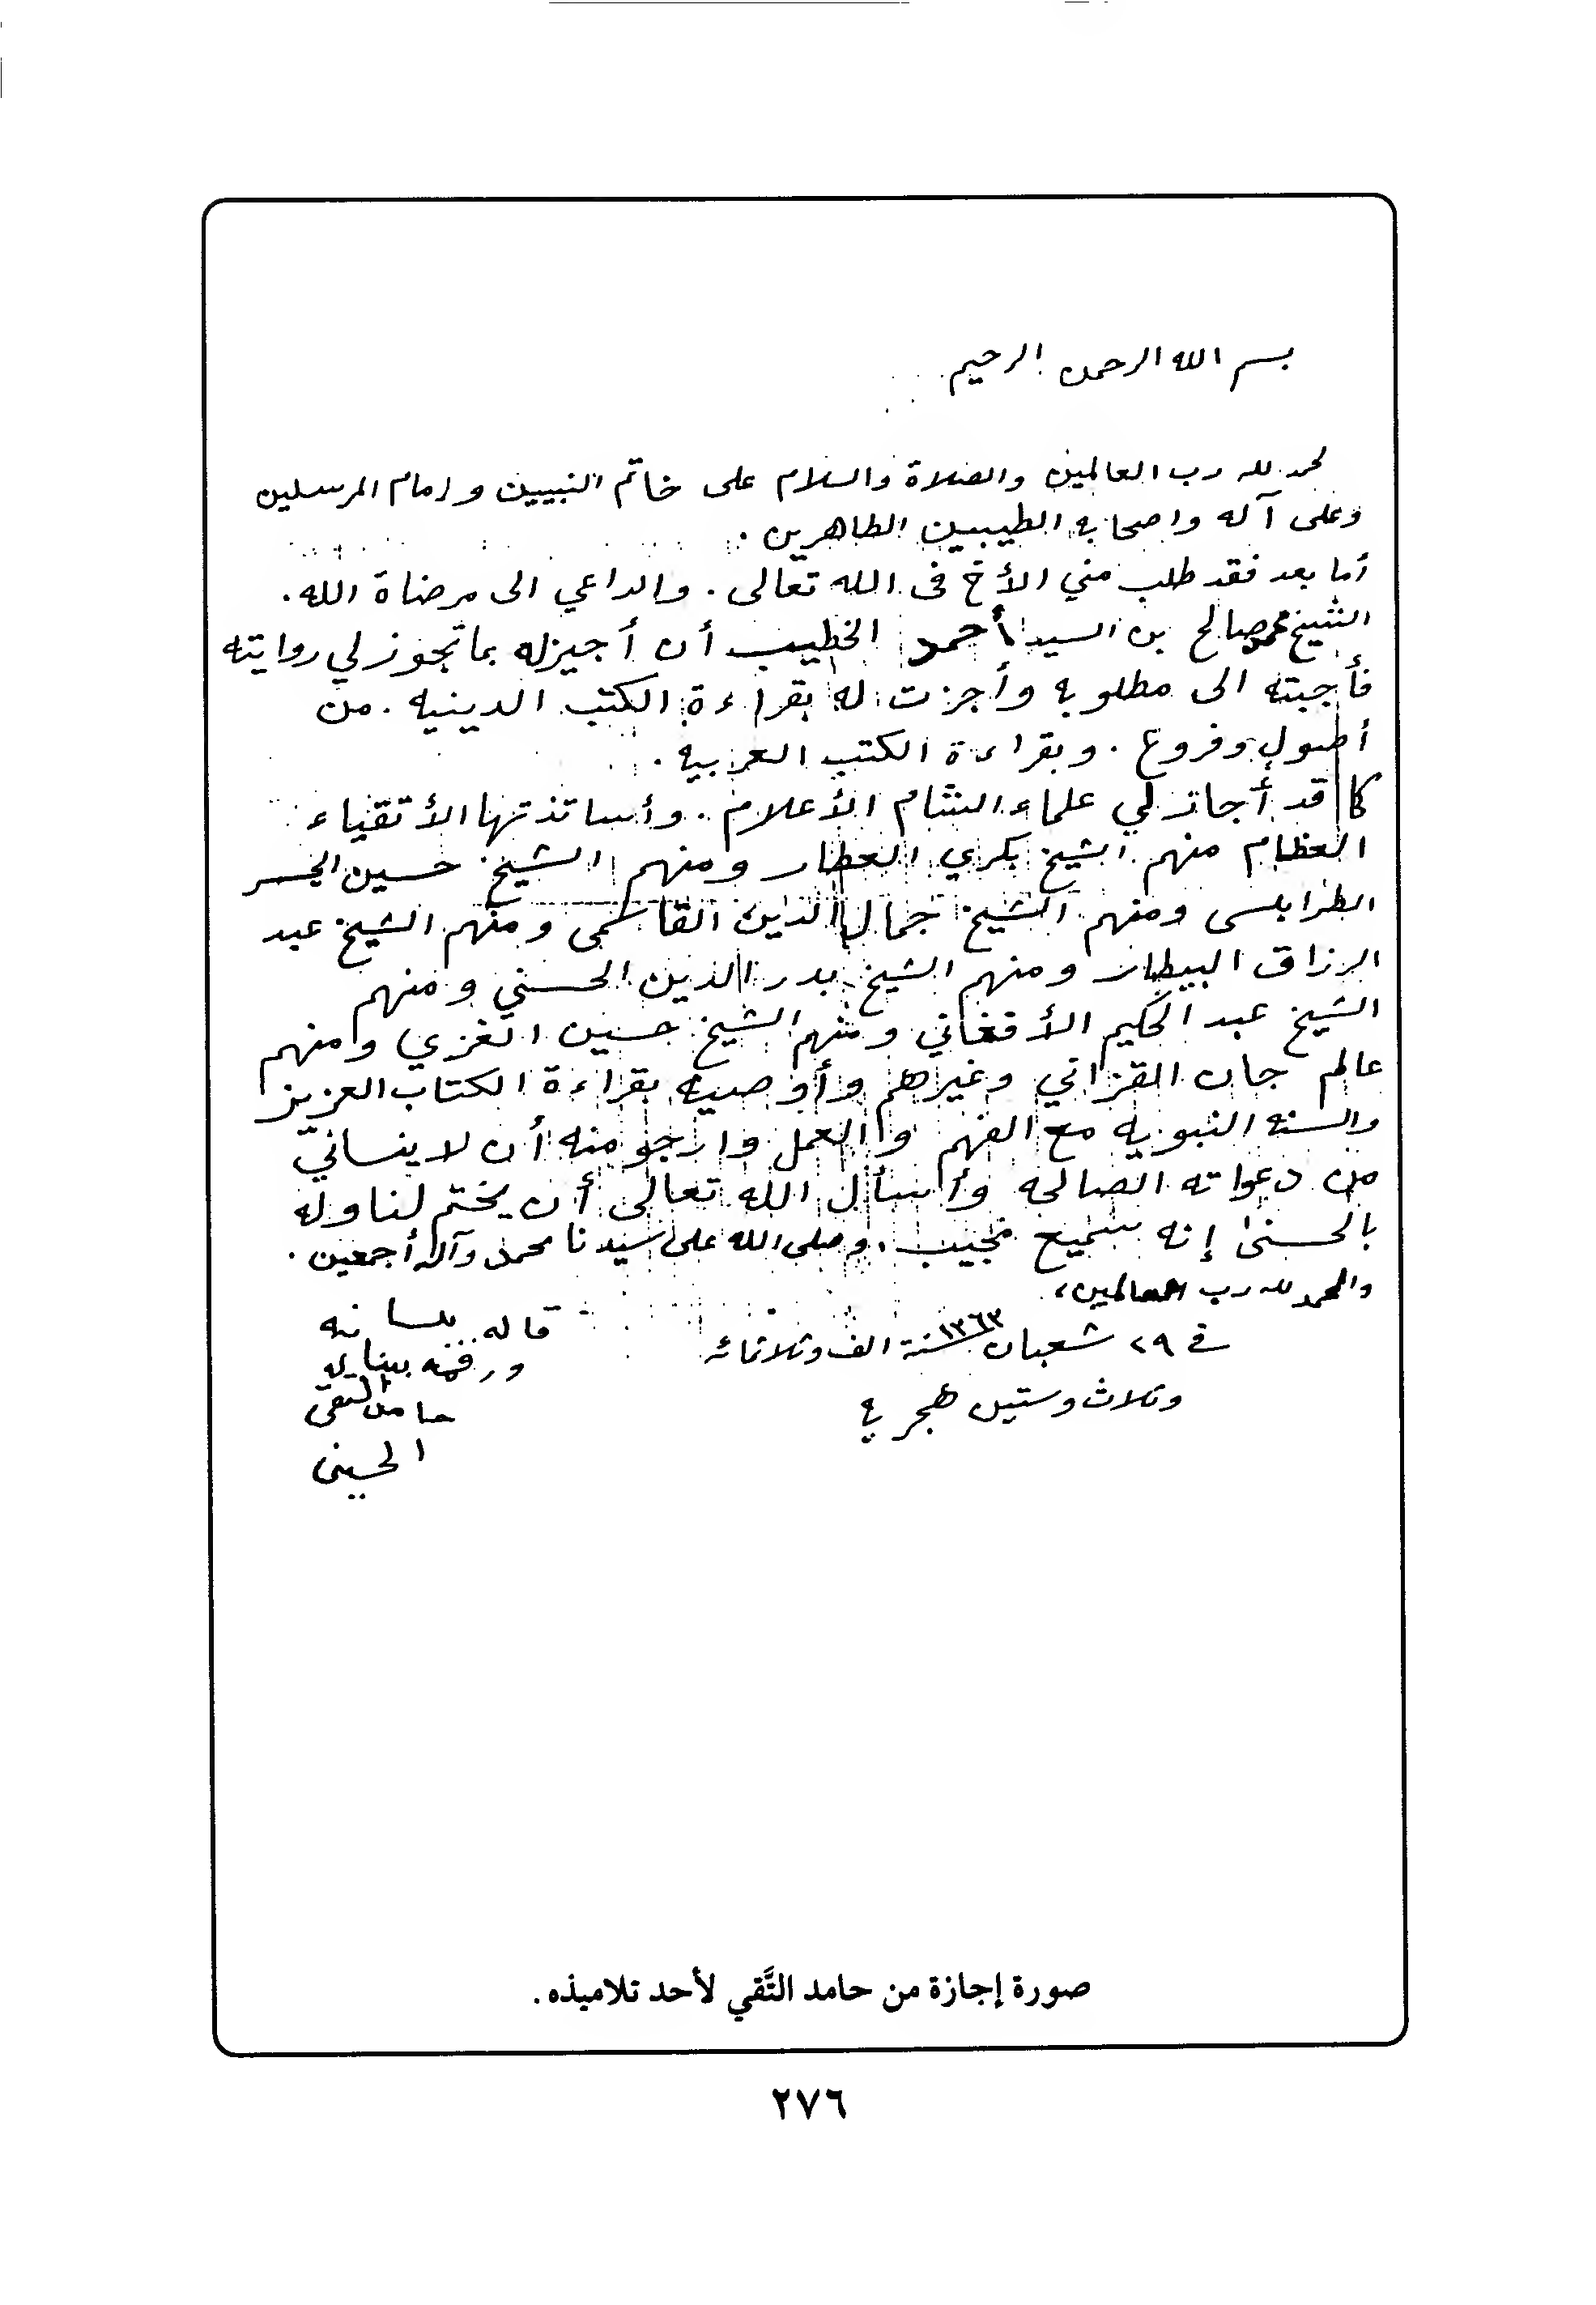 بسم الله الرحمن الرحيم
لحمد لله رب العالمين والصلاة والسلام على خاتم النبيين وإمام المرسلين
وعلى آله واصحابه الطيبين الطاهرين .
أما بعد فقد طلب مني الأخ فى الله تعالى . والداعي الى مرضاة الله .
الشيخ محمد صالح بن السيد أحمد الخطيب أن أجيزله بما تجوز لي روايته
فأجبته الى مطلوبه وأجزت له بقراءة الكتب الدينيه . من
أصول وفروع . وبقراءة الكتب العربيه .
كما قد أجازلي علماء الشام الأعلام . وأساتذتها الأتقياء
العظام منهم الشيخ بكري العطار ومنهم الشيخ حسين الجسر
الطرابلسى ومنهم الشيخ جمال الدين القاسمى ومنهم الشيخ عبد
الرزاق البيطار ومنهم الشيخ بدر الدين الحسني ومنهم
الشيخ عبد الحكيم الأفغاني ومنهم الشيخ حسين الغزي ومنهم
عالم جان القزاني وغيرهم وأوصيه بقراءة الكتاب العزيز
والسنه النبويه مع الفهم والعمل وارجو منه أن لا ينسانيّ
من دعواته الصالحه وأسأل الله تعالى أن يختم لنا وله
بالحسنى إنه سميع مجيب . وصلى الله على سيدنا محمد وآله أجمعين .
والحمد لله رب العالمين ،
في ٢٩ شعبان ١٣٦٣ سنة الف وثلاثمائه
وثلاث وستين هجريه
قاله بلسانه
ورقمه ببنانه
حامد التقي
الحسيني
صورة إجازة من حامد التَّقي لأحد تلاميذه .
٢٧٦